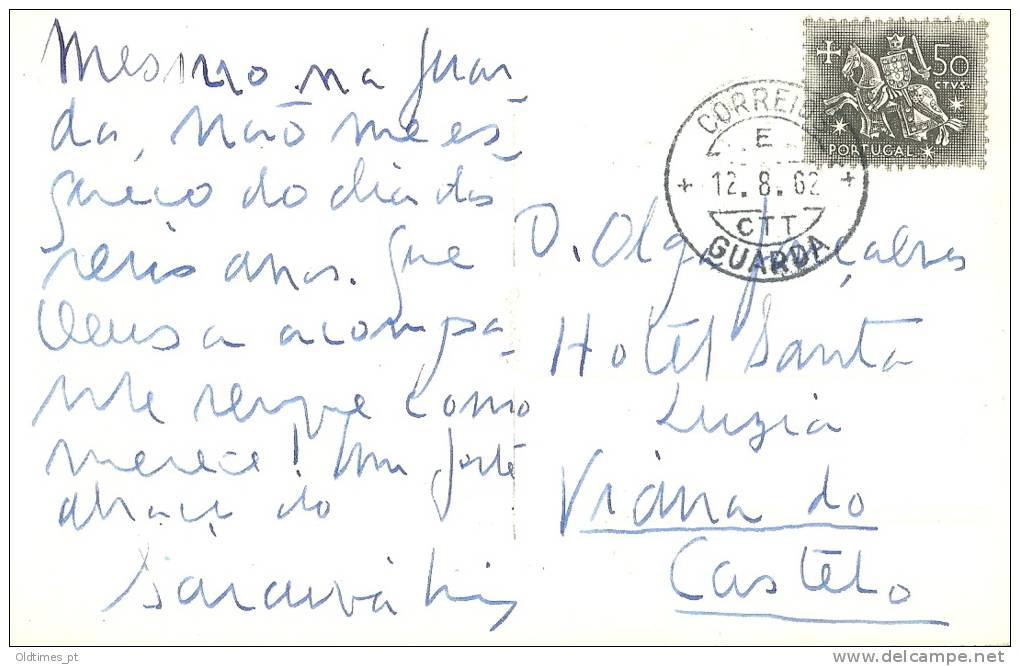 Mesmo na Guar
da, não me es-
queço do dia dos
seus anos. Que
Deus a acompa-
nhe sempre como
merece! Um forte
abraço do
50
CTVS.
PORTUGAL
CORREIOS
E
12.8.62
CTT
GUARDA
D. Olga Gonçalves
Hotel Santa
Luzia
Viana do
Castelo
Oldtimes_pt
www.delcampe.net